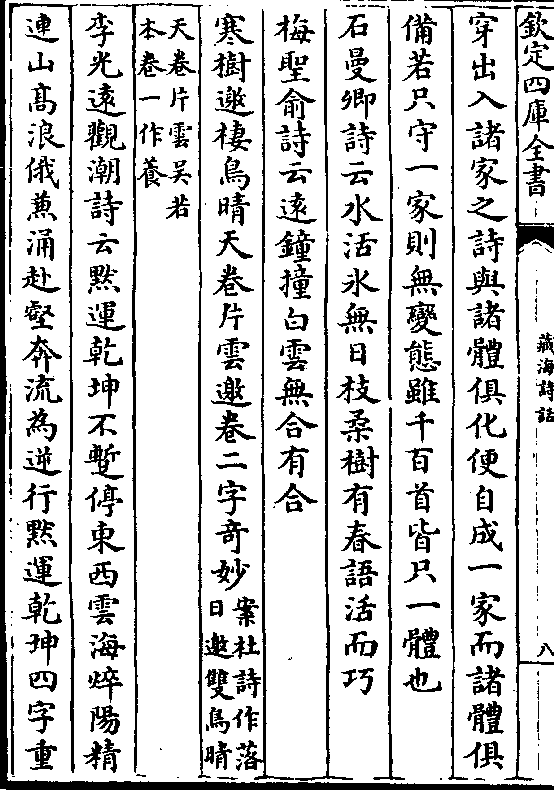 欽定四庫全書
藏海詩話
八
穿出入諸家之詩與諸體俱化便自成一家而諸體俱
備若只守一家則無變態雖千百首皆只一體也
石曼卿詩云水活氷無日枝柔樹有春語活而巧
梅聖俞詩云遠鐘撞白雲無合有合
寒樹邀棲鳥晴天卷片雲邀卷二字奇妙
案杜詩作落
日邀雙鳥晴
天卷片雲吴若
本卷一作養
李光遠觀潮詩云黙運乾坤不暫停東西雲海焠陽精
連山髙浪俄兼涌赴壑奔流為逆行黙運乾坤四字重